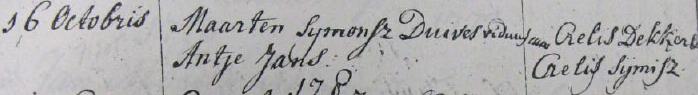 16 Octobris Maarten Symonsz Duives viduus Crelis Dekker
Antje Jans. Crelis Symisz
178